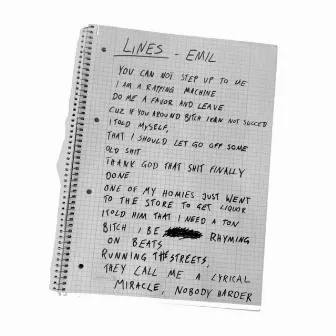 LINES - EMIL
YOU CAN NOT STEP UP TO ME
I AM A RAPPING MACHINE
DO ME A FAVOR AND LEAVE
CUZ IF YOU AROUND BITCH I CAN NOT SUCCEED
I TOLD MYSELF,
THAT I SHOULD LET GO OFF SOME
OLD SHIT
THANK GOD THAT SHIT FINALLY
DONE
ONE OF MY HOMIES JUST WENT
TO THE STORE TO GET LIQUOR
I TOLD HIM THAT I NEED A TON
BITCH I BE RHYMING
ON BEATS
RUNNING THE STREETS,
THEY CALL ME A LYRICAL
MIRACLE, NOBODY HARDER